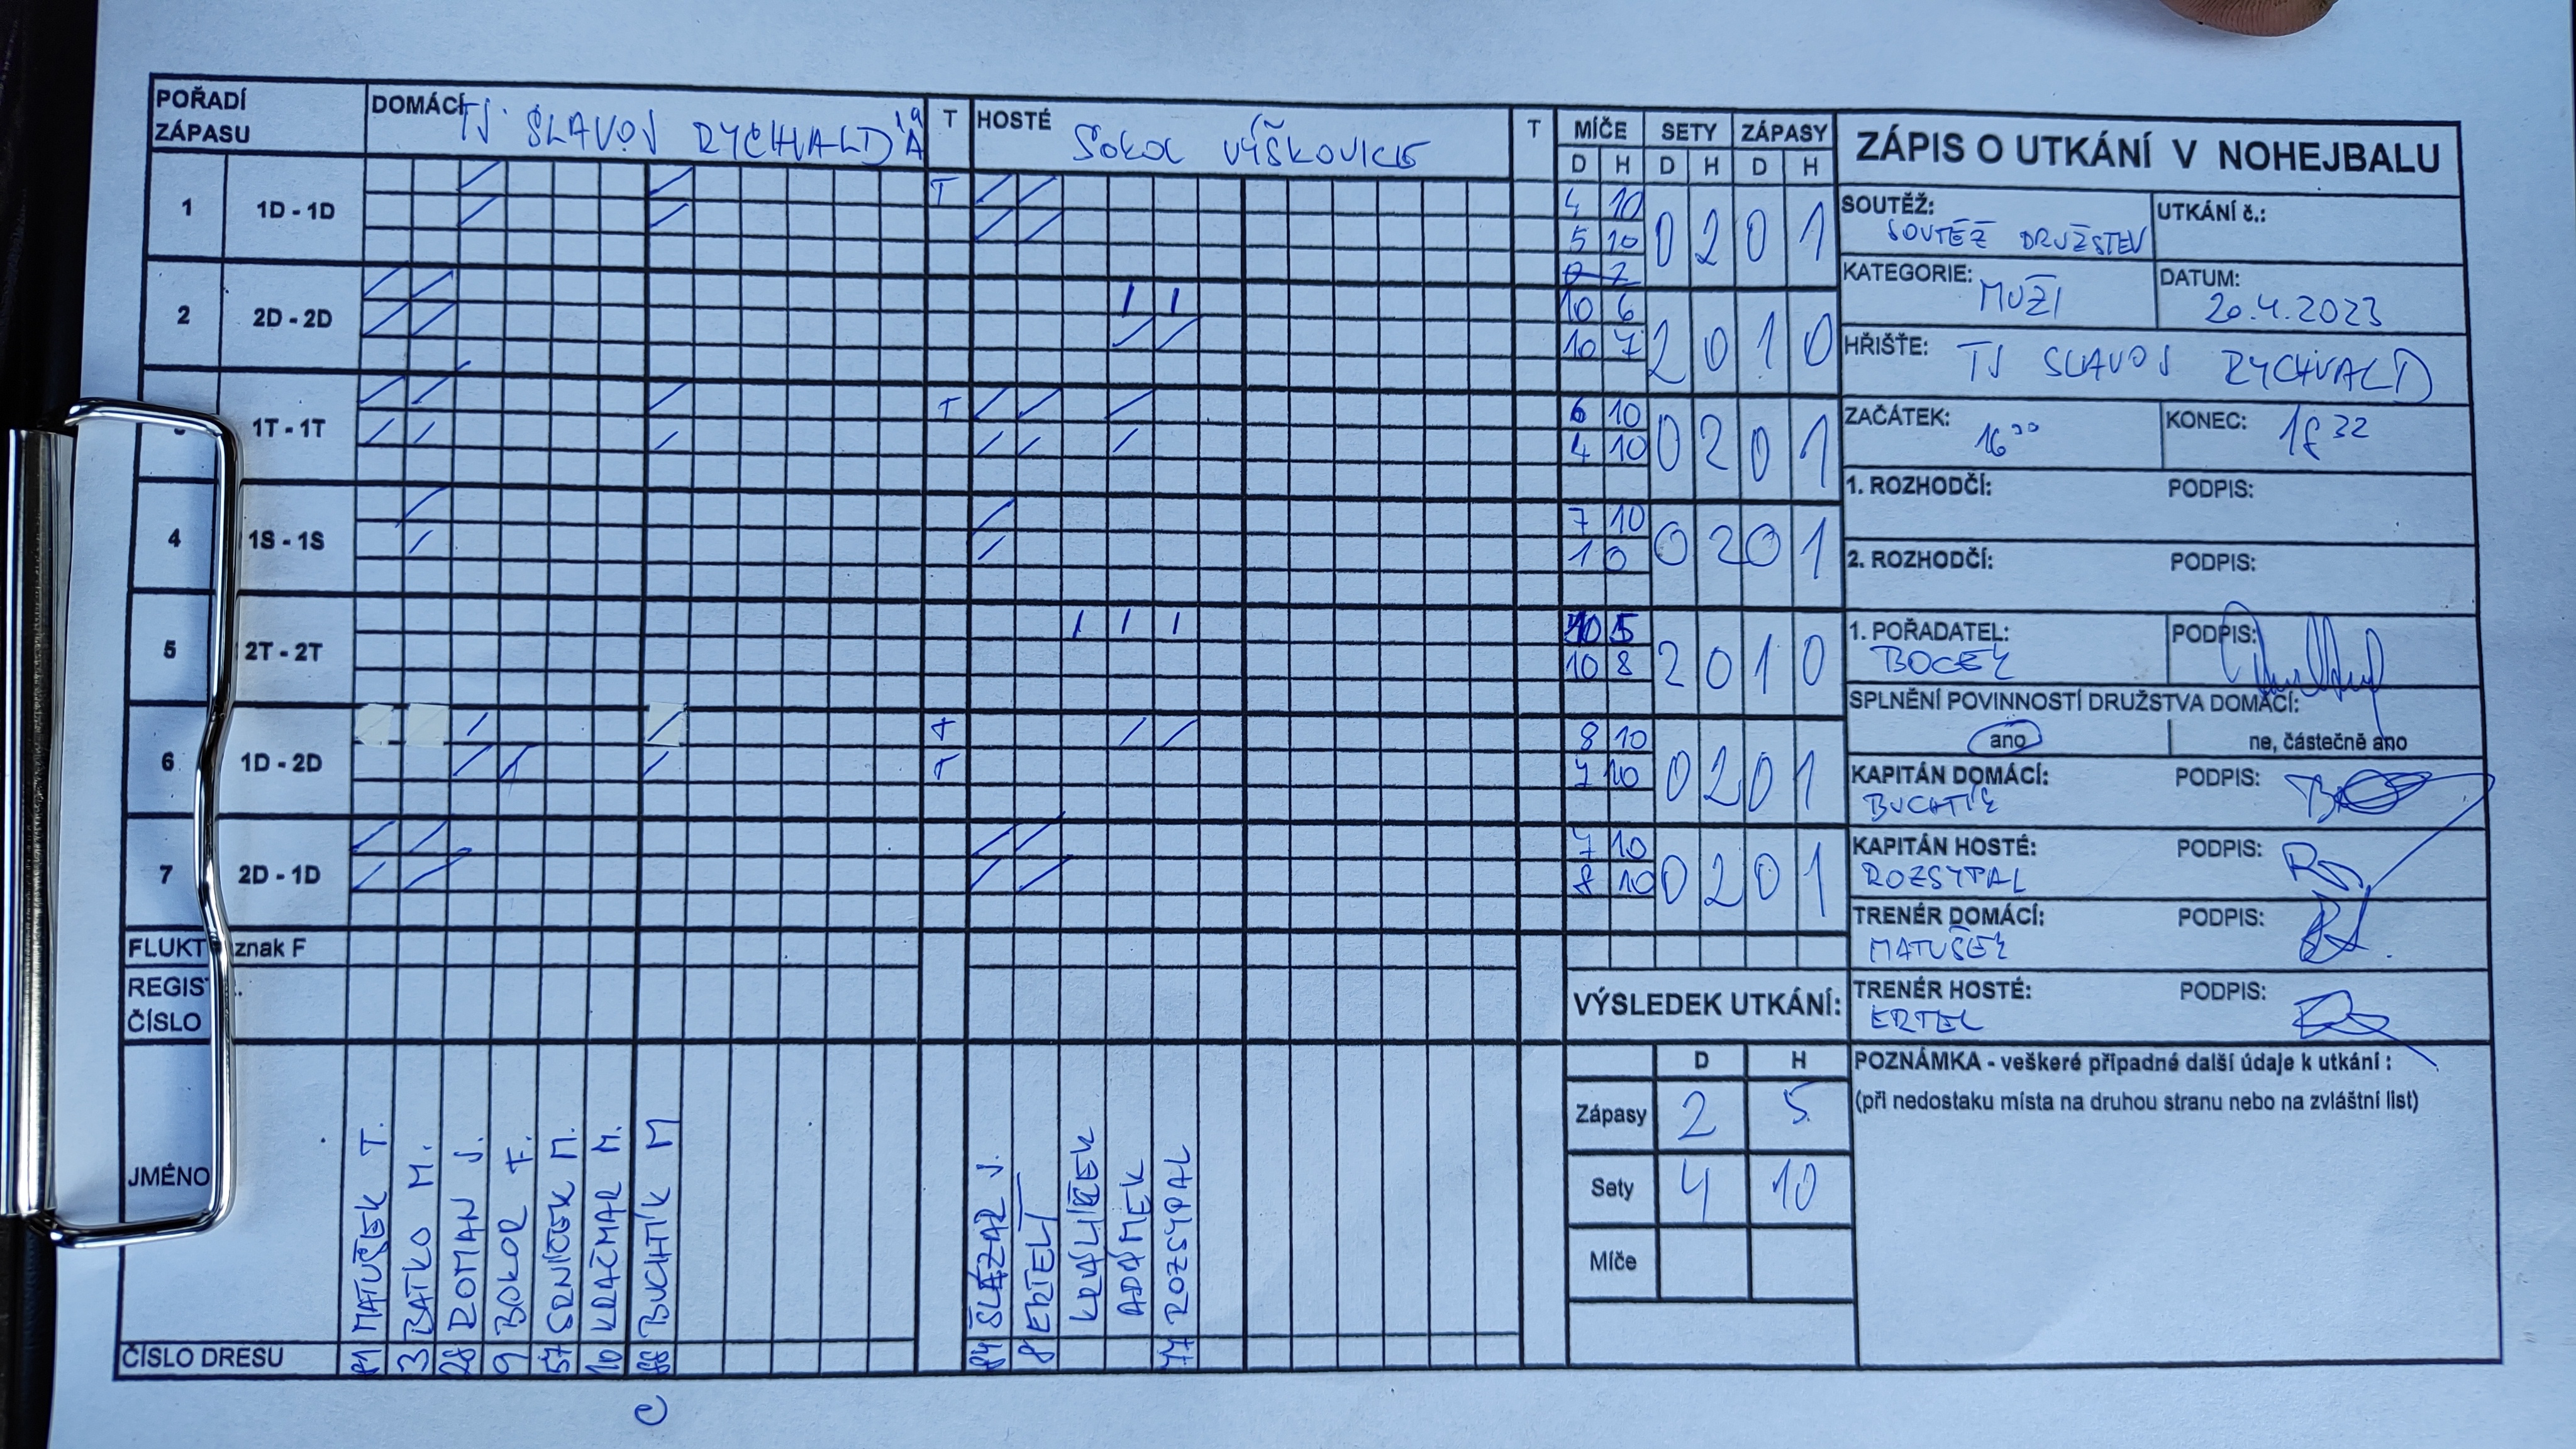 POŘADÍ ZÁPASU
DOMÁCÍ TJ SLAVOJ RYCHVALD "A"
T
HOSTÉ
SOKOL VÝŠKOVICE
T
MÍČE SETY ZÁPASY
D H D H D H
1 1D - 1D T 4 10 0 2 0 1
5 10
2 2D - 2D 10 6 2 0 1 0
10 7
1T - 1T T 6 10 0 2 0 1
4 10
4 1S - 1S 7 10 0 2 0 1
1 0
5 2T - 2T 10 5 2 0 1 0
10 8
6 1D - 2D T 8 10 0 2 0 1
T 7 10
7 2D - 1D 7 10 0 2 0 1
8 10
FLUKT znak F
REGIS
ČÍSLO
JMÉNO
MATUŠEK T.
BATKO M.
ROMAN J.
BOKOR F.
SRNÍČEK M.
KRAČMAR M.
BUCHTÍK M
ŠLÁZAR J.
ERTELT
KRÁLÍČEK
ADÁMEK
ROZSYPAL
ČÍSLO DRESU 81 3 28 9 57 10 88 84 8 77
C
VÝSLEDEK UTKÁNÍ:
D H
Zápasy 2 5
Sety 4 10
Míče
ZÁPIS O UTKÁNÍ V NOHEJBALU
SOUTĚŽ: SOUTĚŽ DRUŽSTEV
UTKÁNÍ č.:
KATEGORIE: MUŽI
DATUM: 20.4.2023
HŘIŠTĚ: TJ SLAVOJ RYCHVALD
ZAČÁTEK: 16 30
KONEC: 18 32
1. ROZHODČÍ: PODPIS:
2. ROZHODČÍ: PODPIS:
1. POŘADATEL: PODPIS:
BOCEK
SPLNĚNÍ POVINNOSTÍ DRUŽSTVA DOMÁCÍ:
ano ne, částečně ano
KAPITÁN DOMÁCÍ: PODPIS:
BUCHTÍK
KAPITÁN HOSTÉ: PODPIS:
ROZSYPAL
TRENÉR DOMÁCÍ: PODPIS:
MATUŠEK
TRENÉR HOSTÉ: PODPIS:
ERTEL
POZNÁMKA - veškeré případné další údaje k utkání :
(při nedostaku místa na druhou stranu nebo na zvláštní list)